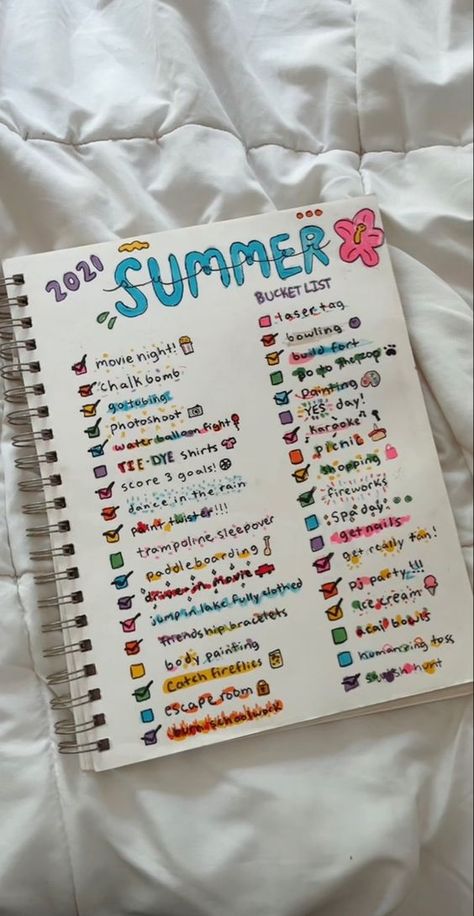 2021
SUMMER
BUCKET LIST
movie night!
chalk bomb
go tubing
photoshoot
water balloon fight
TIE-DYE shirts
score 3 goals!
dance in the rain
paint twister!!!
trampoline sleepover
paddle boarding
drive in movie
jump in lake fully clothed
friendship bracelets
body painting
catch fireflies
escape room
burn schoolwork
laser tag
bowling
build fort
go to the pop
painting
YES day!
karaoke
picnic
shopping
fireworks
spa day
get nails
get really tan!
pj party!!!
ice cream
acai bowls
hammocking
squish hunt